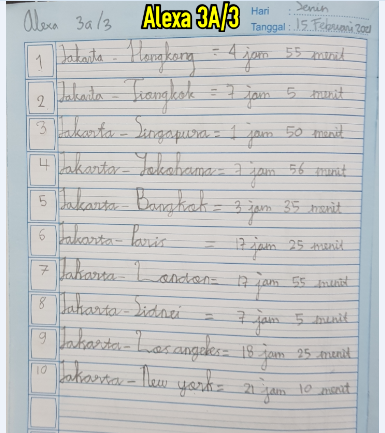 Alexa 3a/3
Alexa 3A/3
Hari : Senin
Tanggal : 15 Februari 2021
1 Jakarta - Hongkong = 4 jam 55 menit
2 Jakarta - Tiangkok = 7 jam 5 menit
3 Jakarta - Singapura = 1 jam 50 menit
4 Jakarta - Yokohama = 7 jam 56 menit
5 Jakarta - Bangkok = 3 jam 35 menit
6 Jakarta - Paris = 17 jam 25 menit
7 Jakarta - London = 17 jam 55 menit
8 Jakarta - Sidnei = 7 jam 5 menit
9 Jakarta - Los angeles = 18 jam 25 menit
10 Jakarta - New york = 21 jam 10 menit